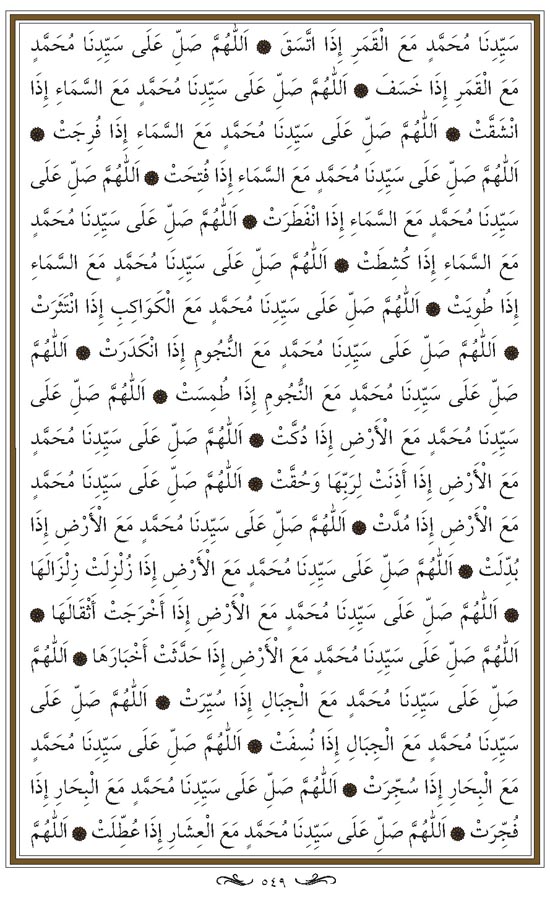 سَيِّدِنَا مُحَمَّدٍ مَعَ الْقَمَرِ إِذَا اتَّسَقَ ۞ اَللّٰهُمَّ صَلِّ عَلَى سَيِّدِنَا مُحَمَّدٍ
مَعَ الْقَمَرِ إِذَا خَسَفَ ۞ اَللّٰهُمَّ صَلِّ عَلَى سَيِّدِنَا مُحَمَّدٍ مَعَ السَّمَاءِ إِذَا
انْشَقَّتْ ۞ اَللّٰهُمَّ صَلِّ عَلَى سَيِّدِنَا مُحَمَّدٍ مَعَ السَّمَاءِ إِذَا فُرِجَتْ ۞
اَللّٰهُمَّ صَلِّ عَلَى سَيِّدِنَا مُحَمَّدٍ مَعَ السَّمَاءِ إِذَا فُتِحَتْ ۞ اَللّٰهُمَّ صَلِّ عَلَى
سَيِّدِنَا مُحَمَّدٍ مَعَ السَّمَاءِ إِذَا انْفَطَرَتْ ۞ اَللّٰهُمَّ صَلِّ عَلَى سَيِّدِنَا مُحَمَّدٍ
مَعَ السَّمَاءِ إِذَا كُشِطَتْ ۞ اَللّٰهُمَّ صَلِّ عَلَى سَيِّدِنَا مُحَمَّدٍ مَعَ السَّمَاءِ
إِذَا طُوِيَتْ ۞ اَللّٰهُمَّ صَلِّ عَلَى سَيِّدِنَا مُحَمَّدٍ مَعَ الْكَوَاكِبِ إِذَا انْتَثَرَتْ
۞ اَللّٰهُمَّ صَلِّ عَلَى سَيِّدِنَا مُحَمَّدٍ مَعَ النُّجُومِ إِذَا انْكَدَرَتْ ۞ اَللّٰهُمَّ
صَلِّ عَلَى سَيِّدِنَا مُحَمَّدٍ مَعَ النُّجُومِ إِذَا طُمِسَتْ ۞ اَللّٰهُمَّ صَلِّ عَلَى
سَيِّدِنَا مُحَمَّدٍ مَعَ الْأَرْضِ إِذَا دُكَّتْ ۞ اَللّٰهُمَّ صَلِّ عَلَى سَيِّدِنَا مُحَمَّدٍ
مَعَ الْأَرْضِ إِذَا أَذِنَتْ لِرَبِّهَا وَحُقَّتْ ۞ اَللّٰهُمَّ صَلِّ عَلَى سَيِّدِنَا مُحَمَّدٍ
مَعَ الْأَرْضِ إِذَا مُدَّتْ ۞ اَللّٰهُمَّ صَلِّ عَلَى سَيِّدِنَا مُحَمَّدٍ مَعَ الْأَرْضِ إِذَا
بُدِّلَتْ ۞ اَللّٰهُمَّ صَلِّ عَلَى سَيِّدِنَا مُحَمَّدٍ مَعَ الْأَرْضِ إِذَا زُلْزِلَتْ زِلْزَالَهَا
۞ اَللّٰهُمَّ صَلِّ عَلَى سَيِّدِنَا مُحَمَّدٍ مَعَ الْأَرْضِ إِذَا أَخْرَجَتْ أَثْقَالَهَا ۞
اَللّٰهُمَّ صَلِّ عَلَى سَيِّدِنَا مُحَمَّدٍ مَعَ الْأَرْضِ إِذَا حَدَّثَتْ أَخْبَارَهَا ۞ اَللّٰهُمَّ
صَلِّ عَلَى سَيِّدِنَا مُحَمَّدٍ مَعَ الْجِبَالِ إِذَا سُيِّرَتْ ۞ اَللّٰهُمَّ صَلِّ عَلَى
سَيِّدِنَا مُحَمَّدٍ مَعَ الْجِبَالِ إِذَا نُسِفَتْ ۞ اَللّٰهُمَّ صَلِّ عَلَى سَيِّدِنَا مُحَمَّدٍ
مَعَ الْبِحَارِ إِذَا سُجِّرَتْ ۞ اَللّٰهُمَّ صَلِّ عَلَى سَيِّدِنَا مُحَمَّدٍ مَعَ الْبِحَارِ إِذَا
فُجِّرَتْ ۞ اَللّٰهُمَّ صَلِّ عَلَى سَيِّدِنَا مُحَمَّدٍ مَعَ الْعِشَارِ إِذَا عُطِّلَتْ ۞ اَللّٰهُمَّ
٥٤٩